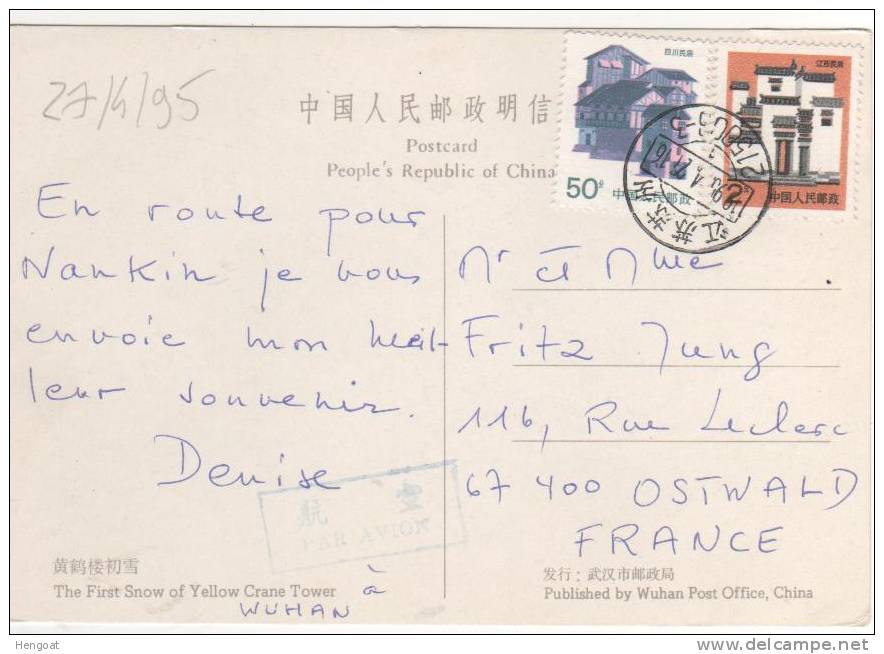 27/4/95
中国人民邮政明信
Postcard
People's Republic of China
四川民居
50分
中国人民邮政
江西民居
中国人民邮政
江苏
En route pour
Nankin je vous
envoie mon meil-
leur souvenir.
Denise
Mr et Mme
Fritz Jung
116, Rue Leclerc
67 400 OSTWALD
FRANCE
航空
PAR AVION
黄鹤楼初雪
The First Snow of Yellow Crane Tower
à
WUHAN
发行：武汉市邮政局
Published by Wuhan Post Office, China
Hengoat
www.delcampe.net